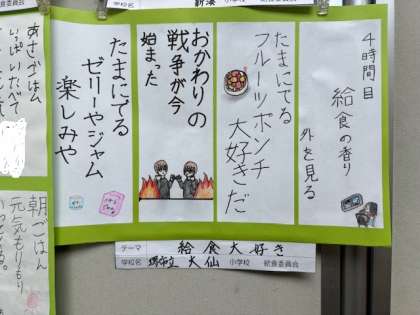 学校名
給食委員会
４時間目
給食の香り
外を見る
たまにでる
フルーツポンチ
大好きだ
おかわりの
戦争が今
始まった
たまにでる
ゼリーやジャム
楽しみや
あさごはん
朝ごはん
元気もりもり
テーマ 給食大好き
学校名 堺市立 大仙 小学校 給食委員会